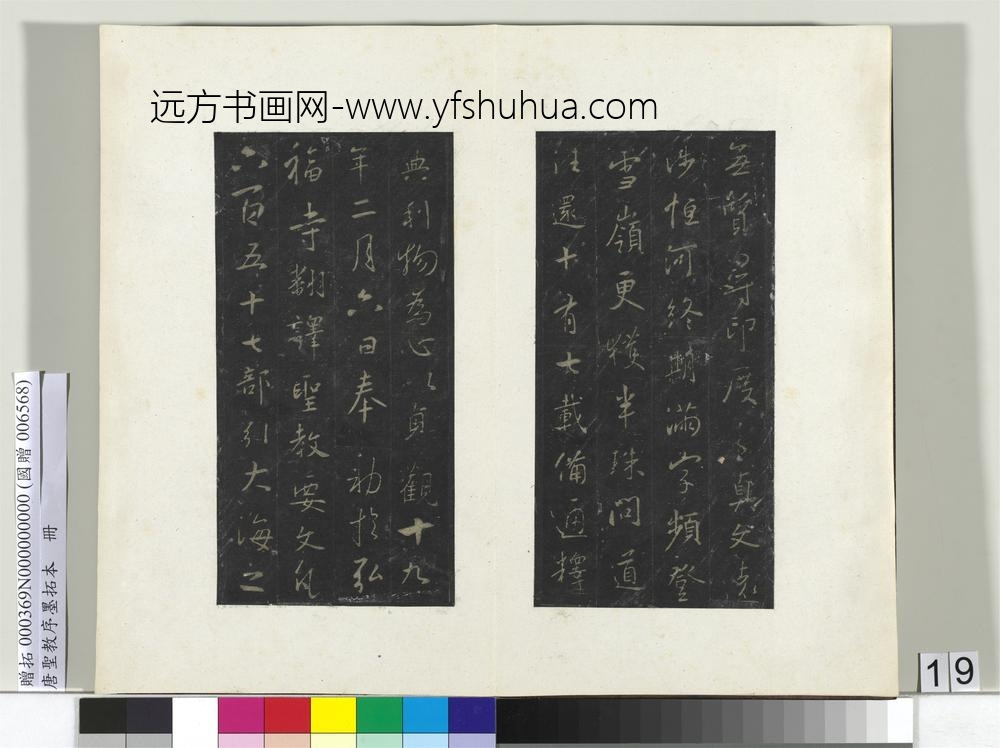 远方书画网-www.yfshuhua.com
無質尋印度之真文遠
涉恒河終期滿字頻登
雪嶺更獲半珠問道
往還十有七載備通釋
典利物為心以貞觀十九
年二月六日奉勑於弘
福寺翻譯聖教要文凡
六百五十七部引大海之
贈拓 000369N000000000 (國贈 006568)
唐聖教序墨拓本 冊
19